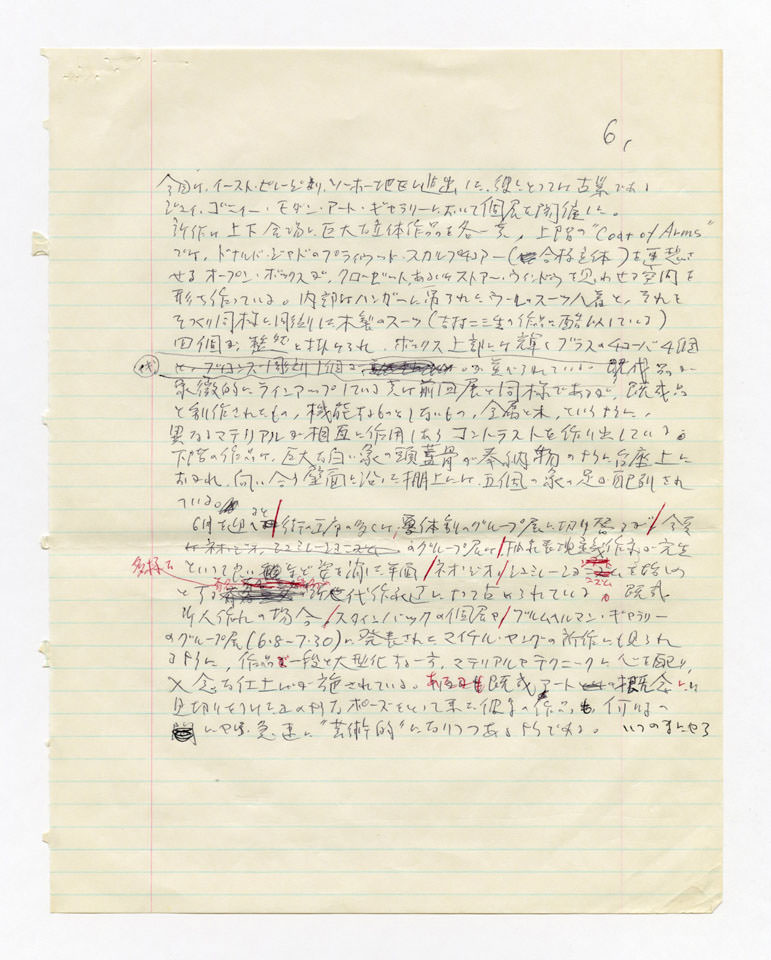 6,
今回は、イースト・ビレージより、ソーホー地区に進出した、彼にとっては古巣である
ジェイ・ゴーニィー・モダン・アート・ギャラリーにおいて個展を開催した。
新作は上下会場に巨大な立体作品を各一点、上階の"Coat of Arms"
では、ドナルド・ジャドのプライウッド・スカルプチュアー(合板立体)を連想さ
せるオープン・ボックスが、クローゼット、あるいはストアー・ウィンドウを思わせる空間を
形ち作っている。内部はハンガーに吊された ウールのスーツ八着と、それと
そっくり同様に彫刻した木製のスーツ(吉村二三生の作品に酷似している)
四個が、整然と掛けられ、ボックス上部には輝くブラスの 4個
が置かれている。既成品が
象徴的にラインアップしている点は前回展と同様であるが、既成品
と制作されたもの、機能するものとしないもの、金属と木、というように、
異なるマテリアルが相互に作用しあうコントラストを作り出している。
下階の作品は、巨大な白い象の頭蓋骨が奉納物のように台座上に
おかれ、向い合う壁面に沿った棚上には、五個の象の足が配列され
ている。
6月を迎えると/術の工房の多くは、団体制のグループ展に切り替るが/今夏
のグループ展は/抽象表現主義作家が完全
多様な
といって良い程など姿を消した半面/ネオ・ジオ/シミュレーショニズムを始め
とする 新世代作家によって占められている。既成
新人作家の場合/スタインバックの個展や/ブルムヘルマン・ギャラリー
のグループ展(6.8-7.30)に発表されたマイケル・ヤングの新作にも見られ
るように、作品が一段と大型化する一方、マテリアルやテクニックに心を配り、
入念な仕上げが施されている。 既成アートの概念に
見切りをつけたようなポーズをとって来た彼等の作品も、何時の
間にやら、急速に"芸術的"になりつつあるようである。 いつのまにやら